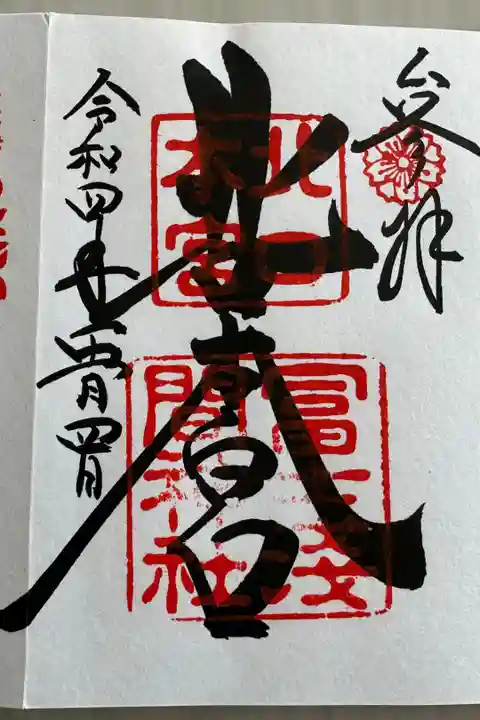 参拝
北口本宮
北口
本宮
冨士浅
間神社
令和四年